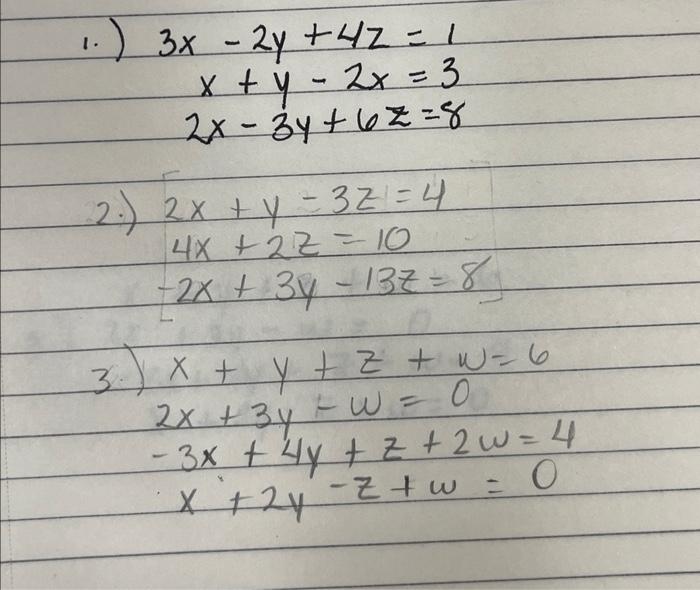 1.) 3x - 2y + 4z = 1
x + y - 2x = 3
2x - 3y + 6z = 8
2.) 2x + y - 3z = 4
4x + 2z = 10
-2x + 3y - 13z = 8
3.) x + y + z + w = 6
2x + 3y - w = 0
-3x + 4y + z + 2w = 4
x + 2y - z + w = 0